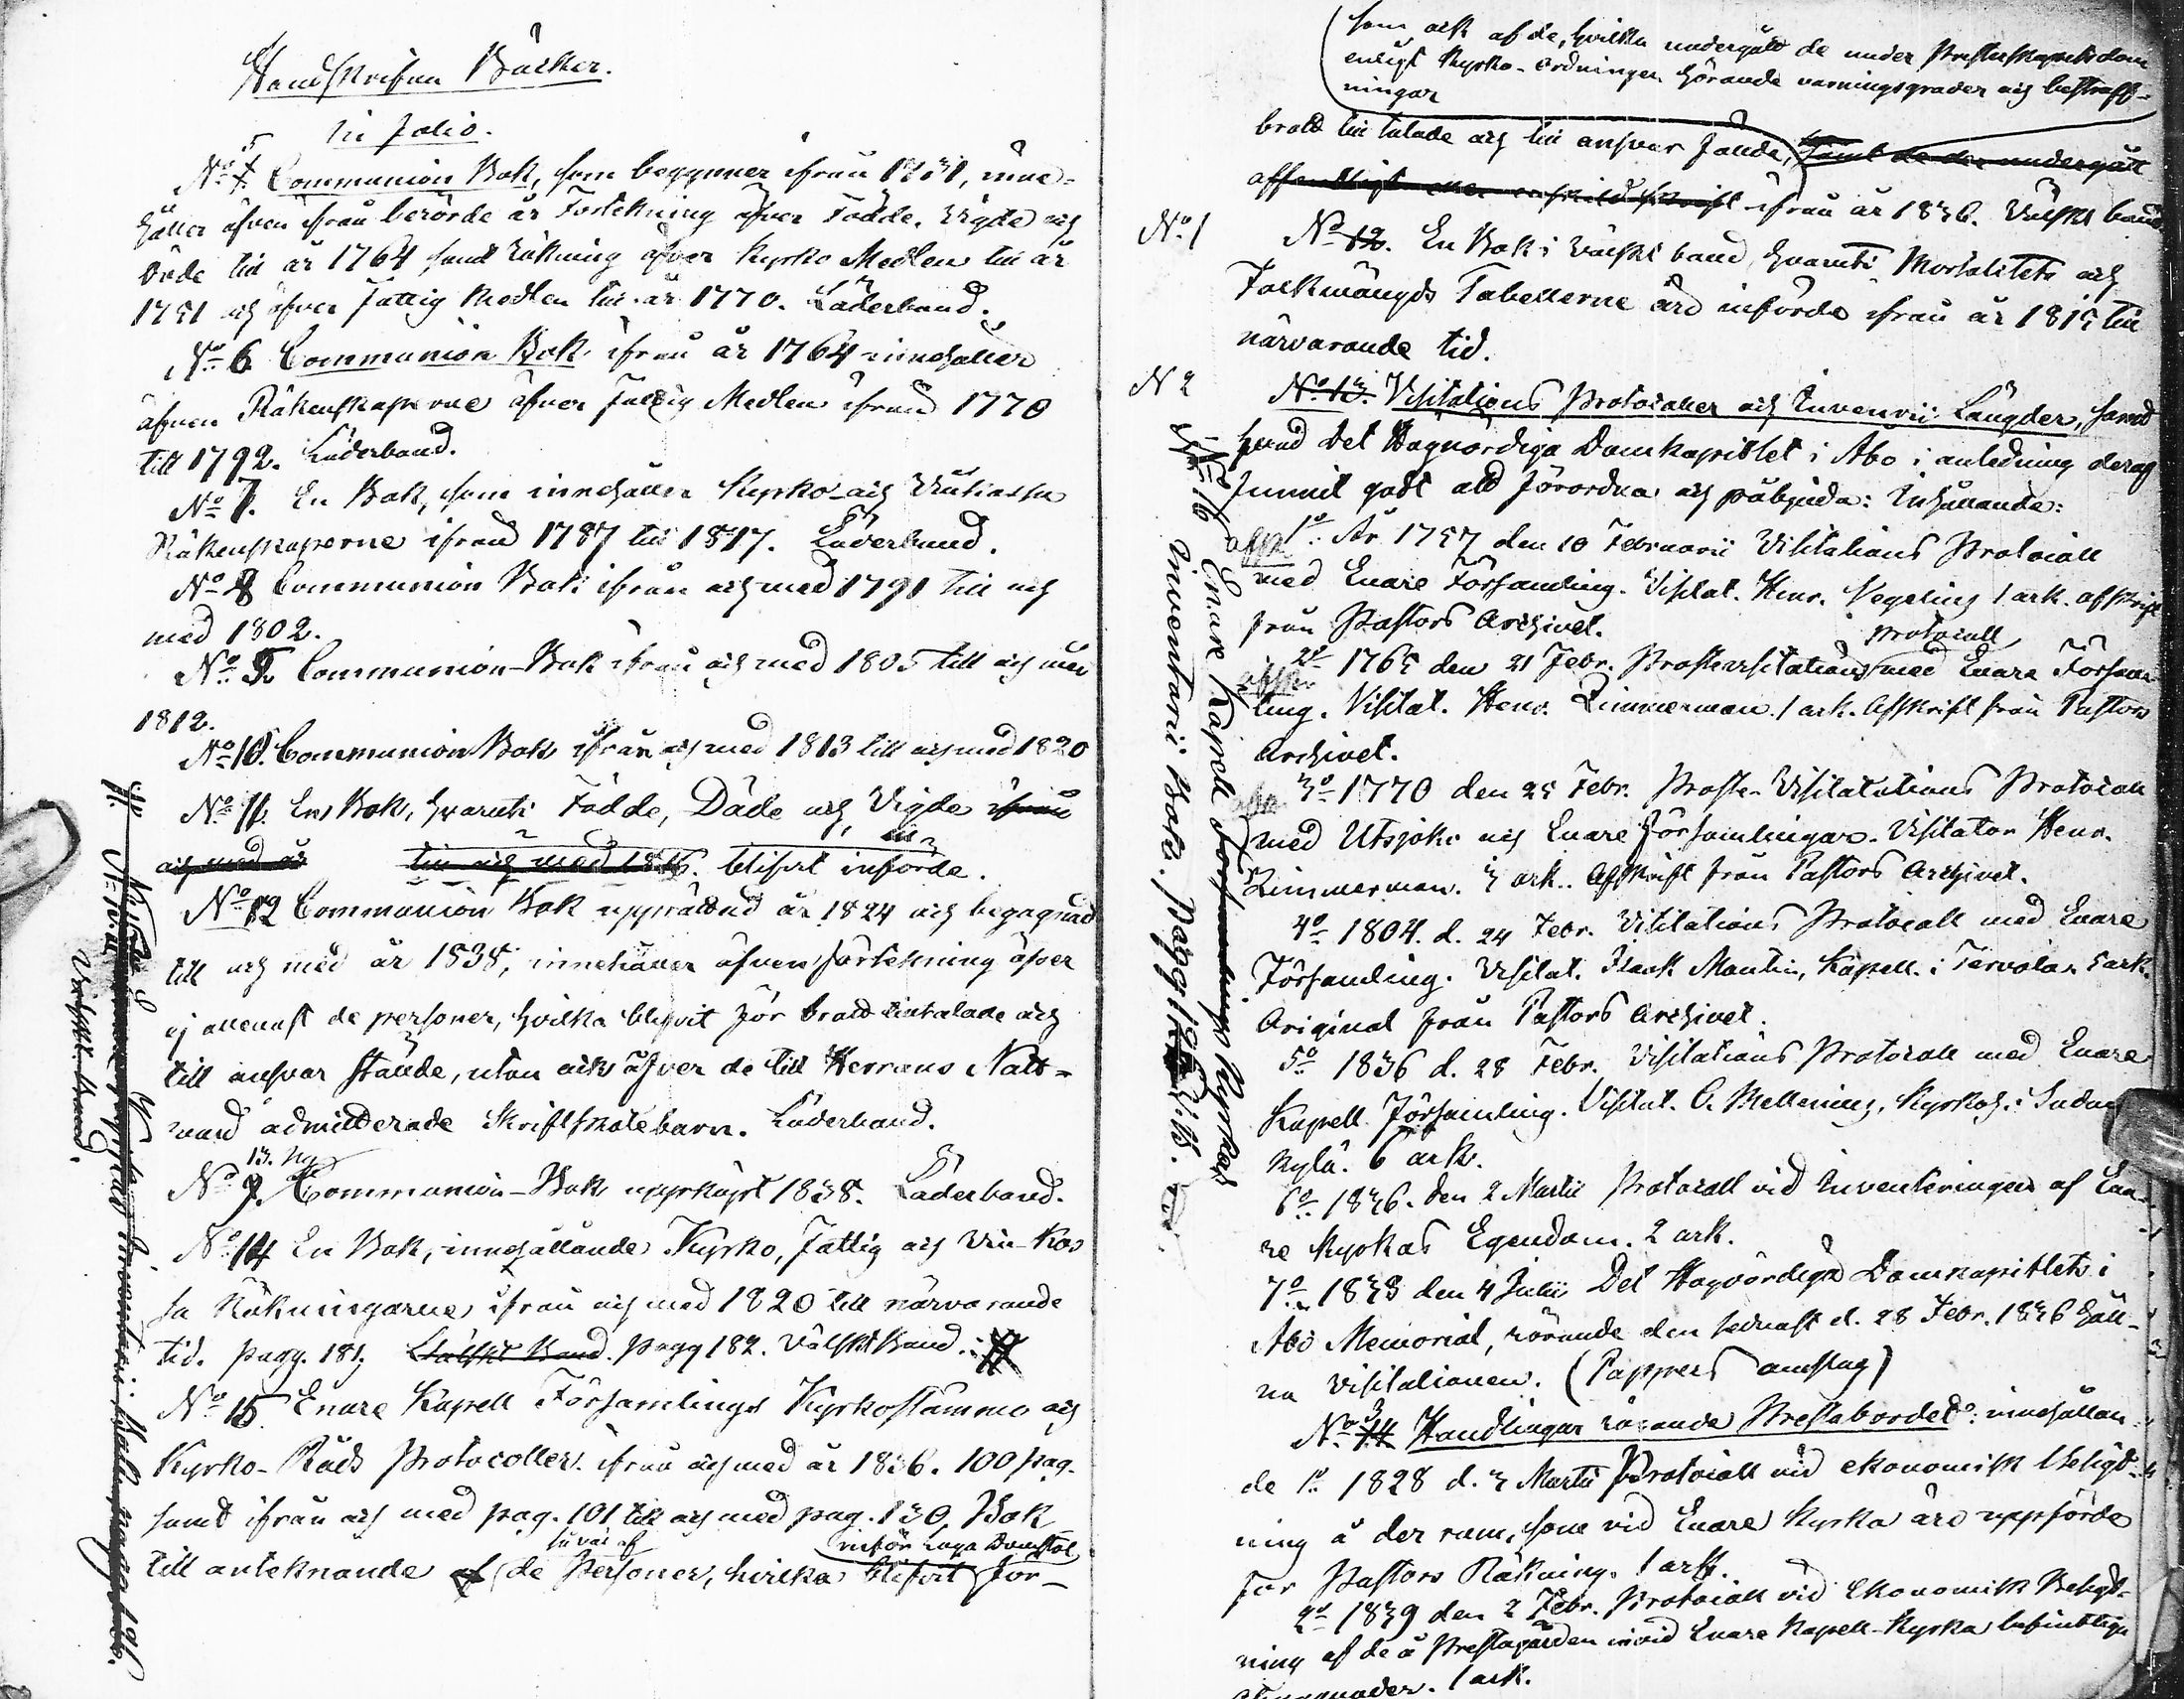 Handskrifna Böcker.
in folio.
No 5 Communion Bok, som begynner ifrån 1751, inne-
håller äfven ifrån berörde år Förtekning öfver Födde, Vigde och
Döde till år 1764 samt Räkning öfver Kyrko Medlen till år
1791 och öfver Fattig Medlen till år 1770. Läderband.
No 6 Communion Bok ifrån år 1764 innehåller
äfven Räkenskaperne öfver Fattig Medlen ifrån 1770
till 1792. Läderband.
No 7. En Bok, som innehåller Kyrko- och Vinkassa
Räkenskaperne ifrån 1787 till 1817. Läderband.
No 8 Communion Bok ifrån och med 1791 till och
med 1802.
No 9. Communion-Bok ifrån och med 1805 till och med
1812.
No 10. Communion Bok ifrån och med 1813 till och med 1820
No 11. En Bok, hvaruti Födde, Döde och Vigde ifrån
och med år till och med 1816. blifvit införde.
No 12 Communion Bok upprättad år 1824 och begagnad
till och med år 1838, innehåller äfven förtekning öfver
ej allenast de personer, hvilka blifvit för brott tiltalade och
till ansvar stände, utan ock öfver de till Herrans Natt-
vard admitterade Skriftskolebarn. Läderband.
13. Ny
No Communion-Bok uppköpt 1838. Läderband.
No 14 En Bok, innehållande Kyrko, Fattig och Vin-Kas
sa Räkningarne ifrån och med 1820 till närvarande
tid. pagg. 181. Välskt Band. pagg 182. Välskt Band.
No 15 Enare Kapell Församlings Kyrkostämmo och
Kyrko-Råds Protocoller ifrån och med år 1836. 100 pag.
samt ifrån och med pag. 101 till och med pag. 130, Bok
såväl af inför laga Domstol
till anteknande af de Personer, hvilka blifvit för-
Välskt band.
som ock af de, hvilka undergått de under Presterskapets dom
enligt Kyrko-ordningen hörande varningsgrader och bestraff-
ningar
brott till talade och till ansvar fälde, samt de der undergått
offentligt eller enskild skrift ifrån år 1836. Välskt band
No 1 No 12. En Bok i välskt band, hvaruti Mortalitets och
Folkmängds Tabellerne äro införde ifrån år 1815 till
närvarande tid.
N 2 No 13. Visitations Protocoller och Inventarii Längder, samt
hvad det Högvördiga Domkapitlet i Åbo i anledning deraf
funnit godt att förordna och påbjuda: Inhållande:
1o. År 1757 den 10 Februarii Visitations Protocoll
med Enare Församling. Visitat. Henr. Wegelius 1 ark. afskrift
från Pastors Archivet.
protocoll
2o 1765 den 21 Febr. Prostevisitations med Enare Försam-
ling. Visitat. Henr. Zimmerman. 1 ark. Afskrift från Pastors
Archivet.
3o 1770 den 25 Febr. Proste-Visitations Protocoll
med Utsjoki och Enare Församlingar. Visitator Henr.
Zimmerman. 3 ark. Afskrift från Pastors Archivet.
4o 1804. d. 24 Febr. Visitations Protocoll med Enare
Församling. Visitat. Isaak Montin, Kapell. i Tervola. 5 ark.
Original från Pastors Archivet.
5o 1836 d. 28 Febr. Visitations Protocoll med Enare
Kapell Församling. Visitat. C. Mellenius, Kyrkoh. i Sodan
kylä. 6 ark.
6o. 1836. den 2 Martii Protocoll vid Inventeringen af Ena-
re Kyrkas Egendom. 2 ark.
7o. 1838 den 4 Julii Det Högvördiga Domkapitlets i
Åbo Memorial, rörande den sednast d. 28 Febr. 1836 håll-
na Visitationen. (Pappers omslag)
3
No 14 Handlingar rörande Prestabordet: innehållan-
de 1o. 1828 d. 3 Martii Protocoll vid ekonomisk Besigt-
ning å der rum, som vid Enare Kyrka äro uppförde
för Pastors Räkning. 1 ark.
2o 1839 den 2 Febr. Protocoll vid Ekonomisk Besigt-
ning af de å Prestagården invid Enare Kapell-Kyrka befintliga
1 ark.
No 16 Enare Kapell Församlings Kyrkas
Inventarii Bok.